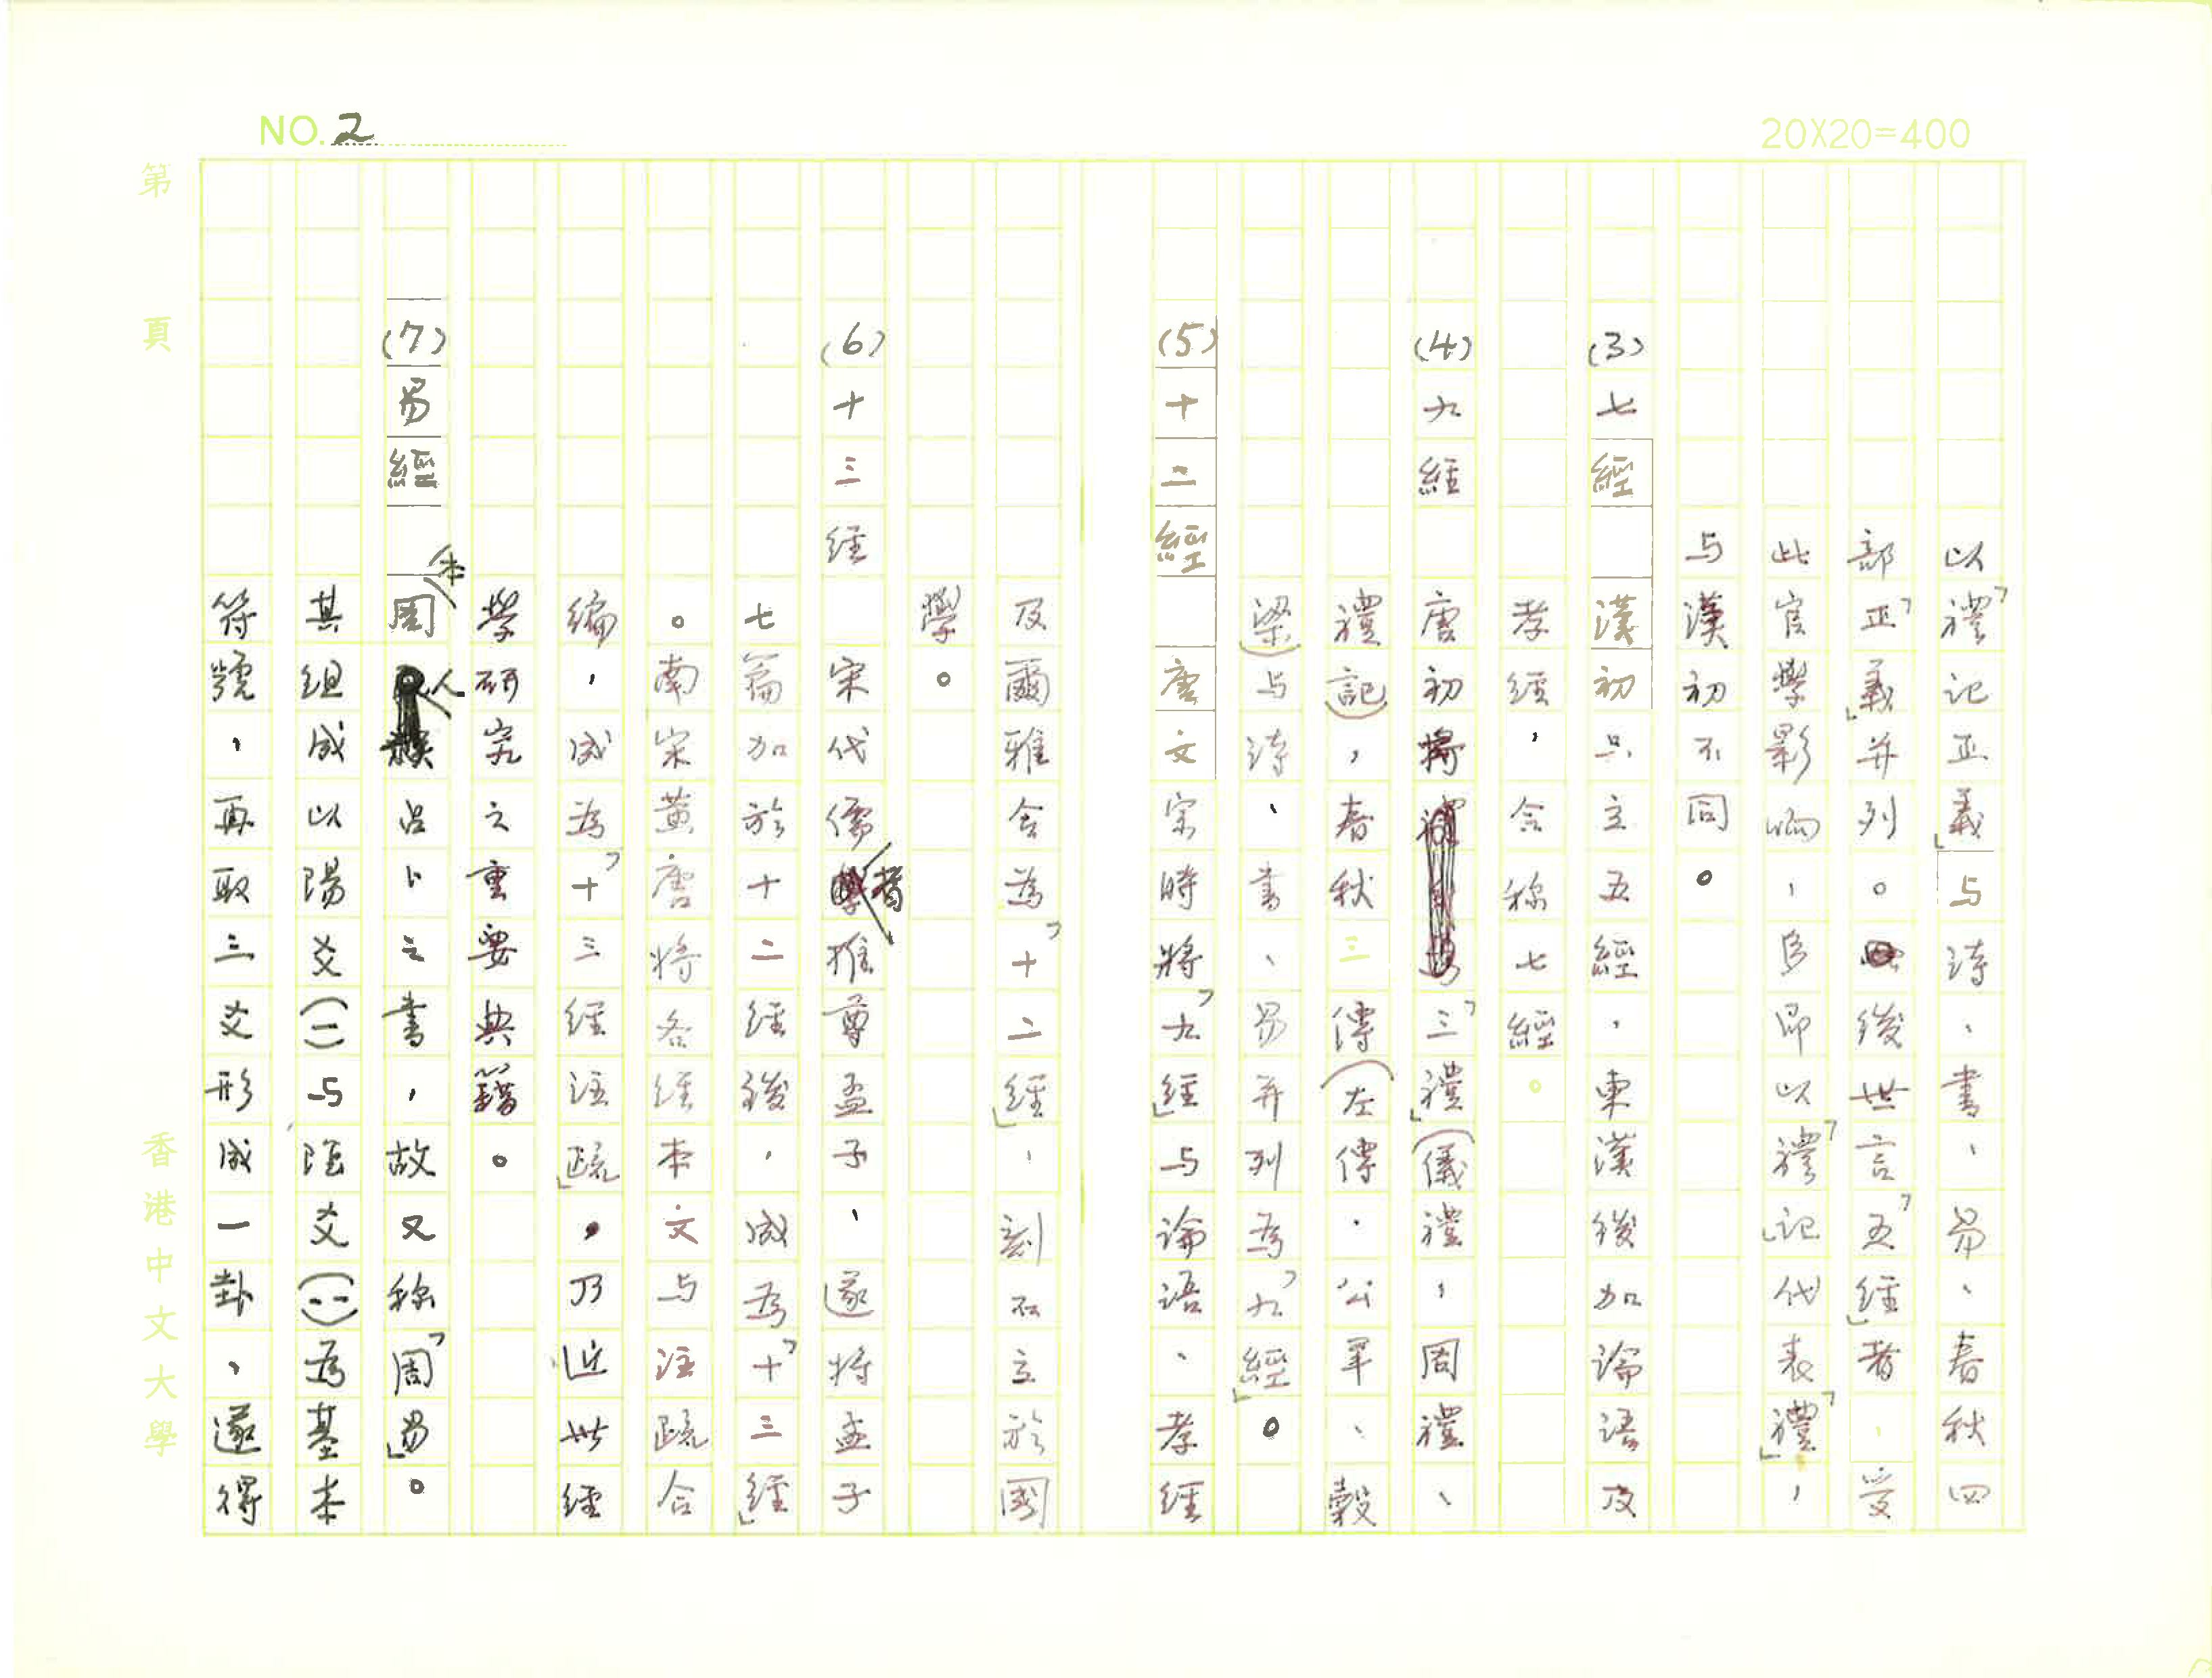 NO. 2
20X20=400
第 頁
以「禮記正義」与詩、書、易、春秋四
部「正義」并列。後世言「五經」者、受
此官學影响,多即以「禮記」代表「禮」,
与漢初不同。
(3)七經 漢初只立五經,東漢後加論語及
孝經,合称七經。
(4)九經 唐初將「三禮」(儀禮,周禮、
禮記),春秋三傳(左傳、公羊、穀
梁)与詩、書、易并列為「九經」。
(5)十二經 唐文宗時將「九經」与論語、孝經
及爾雅合為「十二經」,刻石立於國
學。
(6)十三經 宋代儒者推尊孟子,遂將孟子
七篇加於十二經後,成為「十三經」
。南宋黄唐將各經本文与注疏合
編,成為「十三經注疏」,乃近世經
學研究之重要典籍。
(7)易經 本周人占卜之書,故又称「周易」。
其組成以陽爻(—)与陰爻(--)為基本
符號,再取三爻形成一卦,遂得
香港中文大學